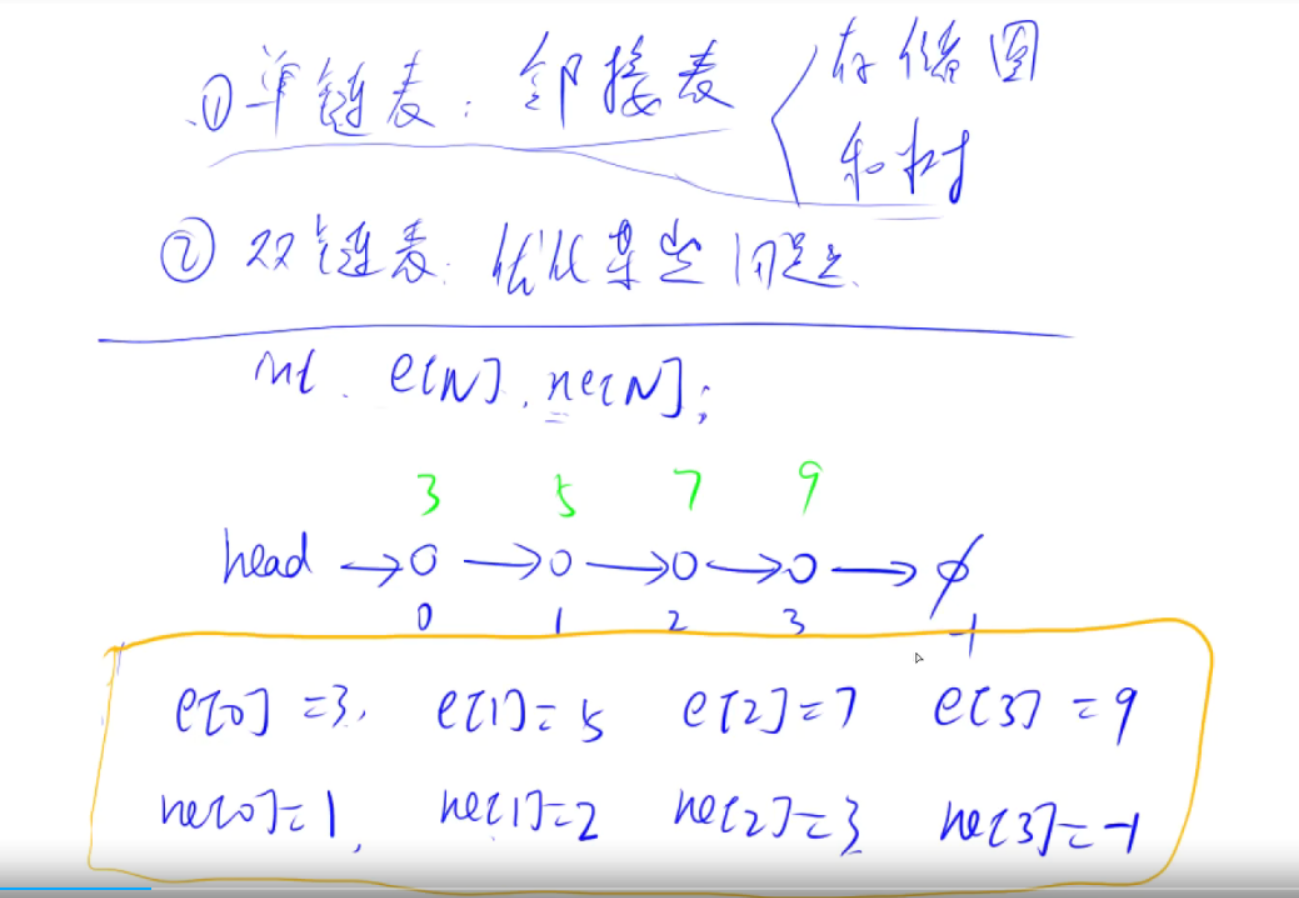 ①单链表：邻接表 存储图
和树
②双链表：优化某些问题.
int. e[N], ne[N];
3 5 7 9
head →O →O →O →O → ∅
0 1 2 3 -1
e[0]=3, e[1]=5 e[2]=7 e[3]=9
ne[0]=1, ne[1]=2 ne[2]=3 ne[3]=-1